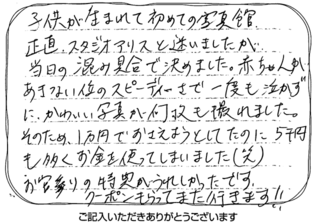 子供が生まれて初めての写真館。
正直、スタジオアリスと迷いましたが
当日の混み具合で決めました。赤ちゃんが
あきない位のスピーディーさで一度も泣かず
に、かわいい写真が何枚も撮れました。
そのため、1万円でおさえようとしてたのに5千円
も多くお金を使ってしまいました(笑)
お宮参りの特典がうれしかったです。
クーポンもらってまた行きます!!
ご記入いただきありがとうございます